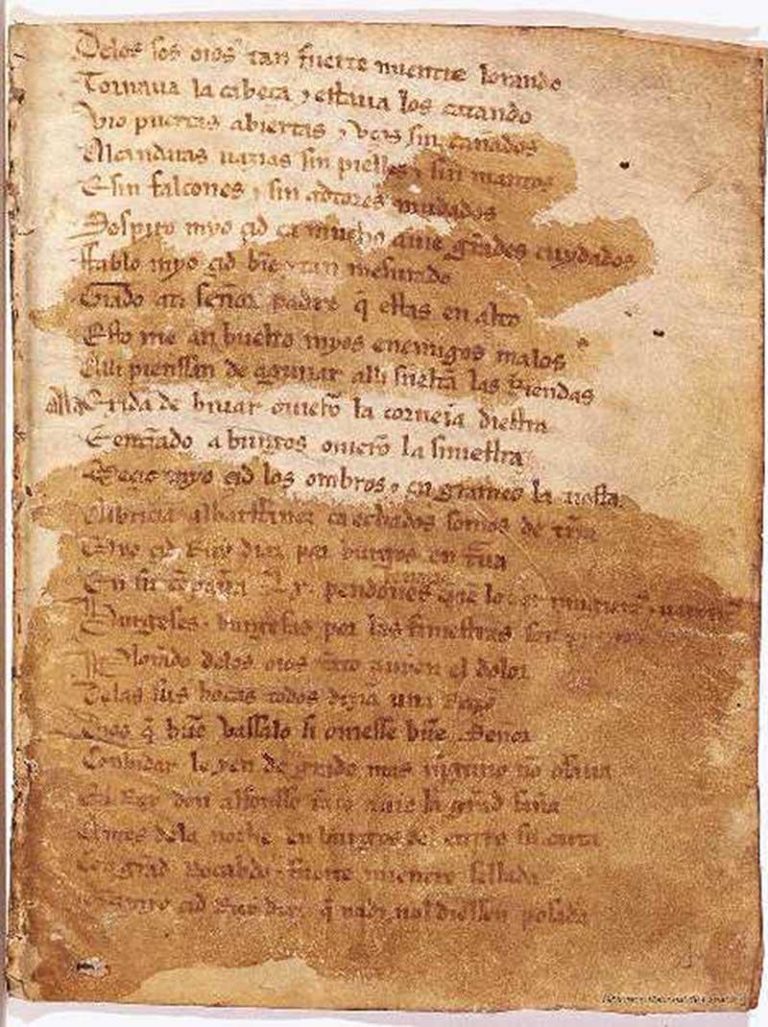 Delos sos oios tan fuerte mientre lorando
Tornaua la cabeça ⁊ estaua los catando
Vio puertas abiertas ⁊ vços sin cañados
Alcandaras uazias sin pielles ⁊ sin mantos
E sin falcones ⁊ sin adtores mudados
Sospiro myo çid ca mucho auie grãdes cuydados
ffablo myo çid biẽ ⁊ tan mesurado
Grado ati señor padre q̃ estas en alto
Esto me an buelto myos enemigos malos
Alli pienssan de aguiiar alli sueltã las Riendas
Ala Exida de biuar ouierõ la corneia diestra
E entrãdo a burgos ouierõ la siniestra
Meçio myo çid los ombros ⁊ engrameo la tiesta
Albricia albarffanez ca echados somos de tr̃ra
Myo çid Ruy diaz por burgos en traua
En su cõpaña Lx pendones
Burgeses ⁊ burgesas por las finiestras son
Plorãdo delos oios tãto auyen el dolor
Delas sus bocas todos dizian una Razõ
Dios q̃ buẽ vassalo si ouiesse buẽ Señor
Conbidar le yen de grado mas ninguno nõ osaua
El Rey don alfonsso tãto auie la grãd saña
Antes dela noche en burgos del entro su carta
Con grãd Recabdo ⁊ fuerte mientre sellada
Que a myo çid Ruy diaz q̃ nadi nol diessen posada